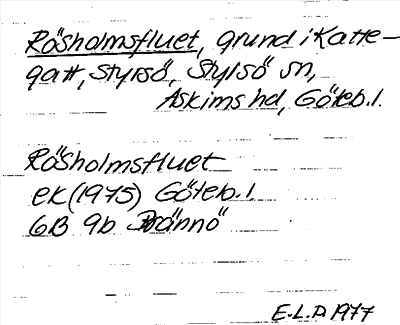 Rösholmsfluet, grund i Katte-
gatt, Styrsö, Styrsö sn,
Askims hd, Göteb. l.
Rösholmsfluet
ek (1975) Göteb. l
6B 9b Brännö
E.L.D 1977